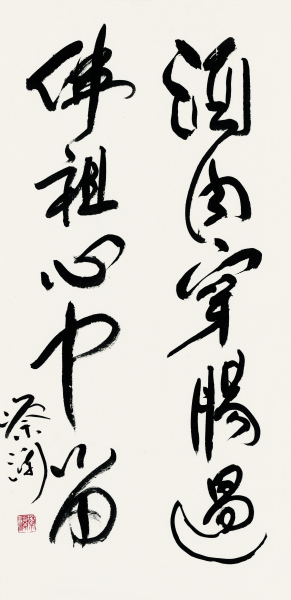 酒肉穿腸過
佛祖心中留
蔡瀾